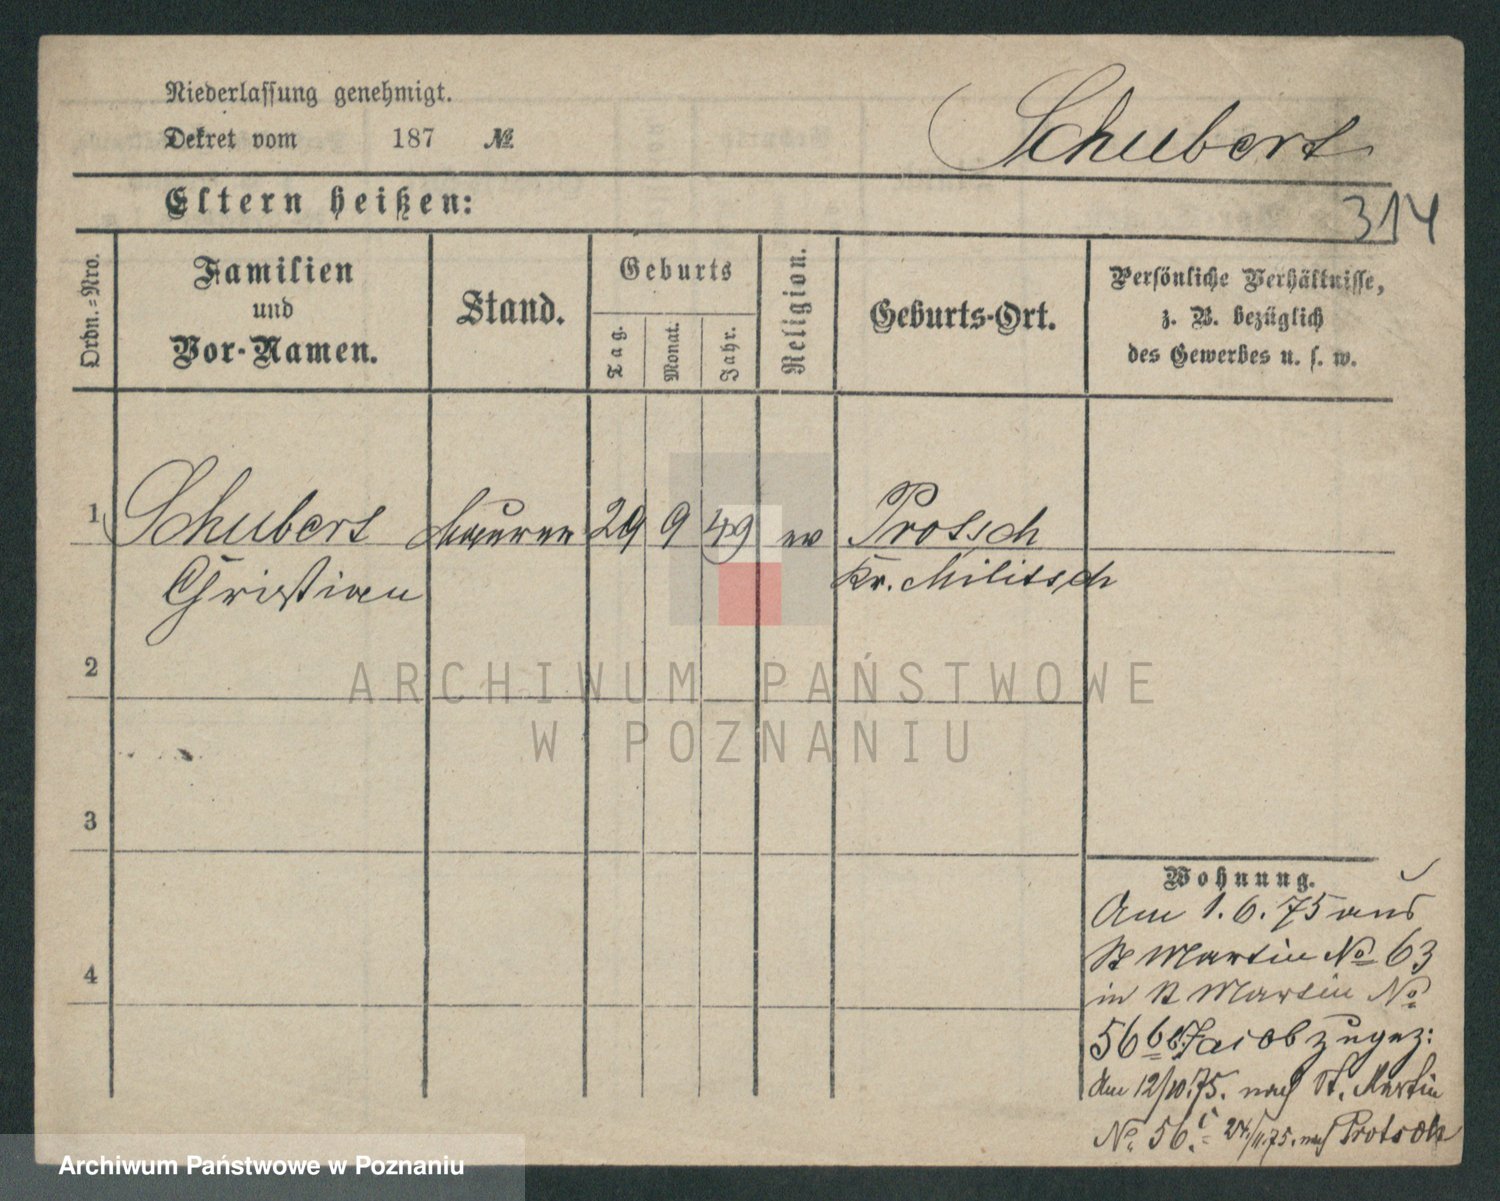 Niederlassung genehmigt.
Dekret vom 187 №
Schubert
Eltern heißen:
314
Ordn.=Nro.
Familien
und
Vor-Namen.
Stand.
Geburts
Tag.
Monat.
Jahr.
Religion.
Geburts-Ort.
Persönliche Verhältnisse,
z. B. bezüglich
des Gewerbes u. s. w.
1 Schubert Maurer 29 9 49 ev Protsch
Christian Kr. Militsch
2
3
4
Wohnung.
Am 1. 6. 75 aus
St Martin No 63
in St Martin No
56 b b. Jacob zugez:
Am 12/10. 75. nach St. Martin
No. 56. c 24/11. 75. nach Protsch
ARCHIWUM PAŃSTWOWE
W POZNANIU
Archiwum Państwowe w Poznaniu